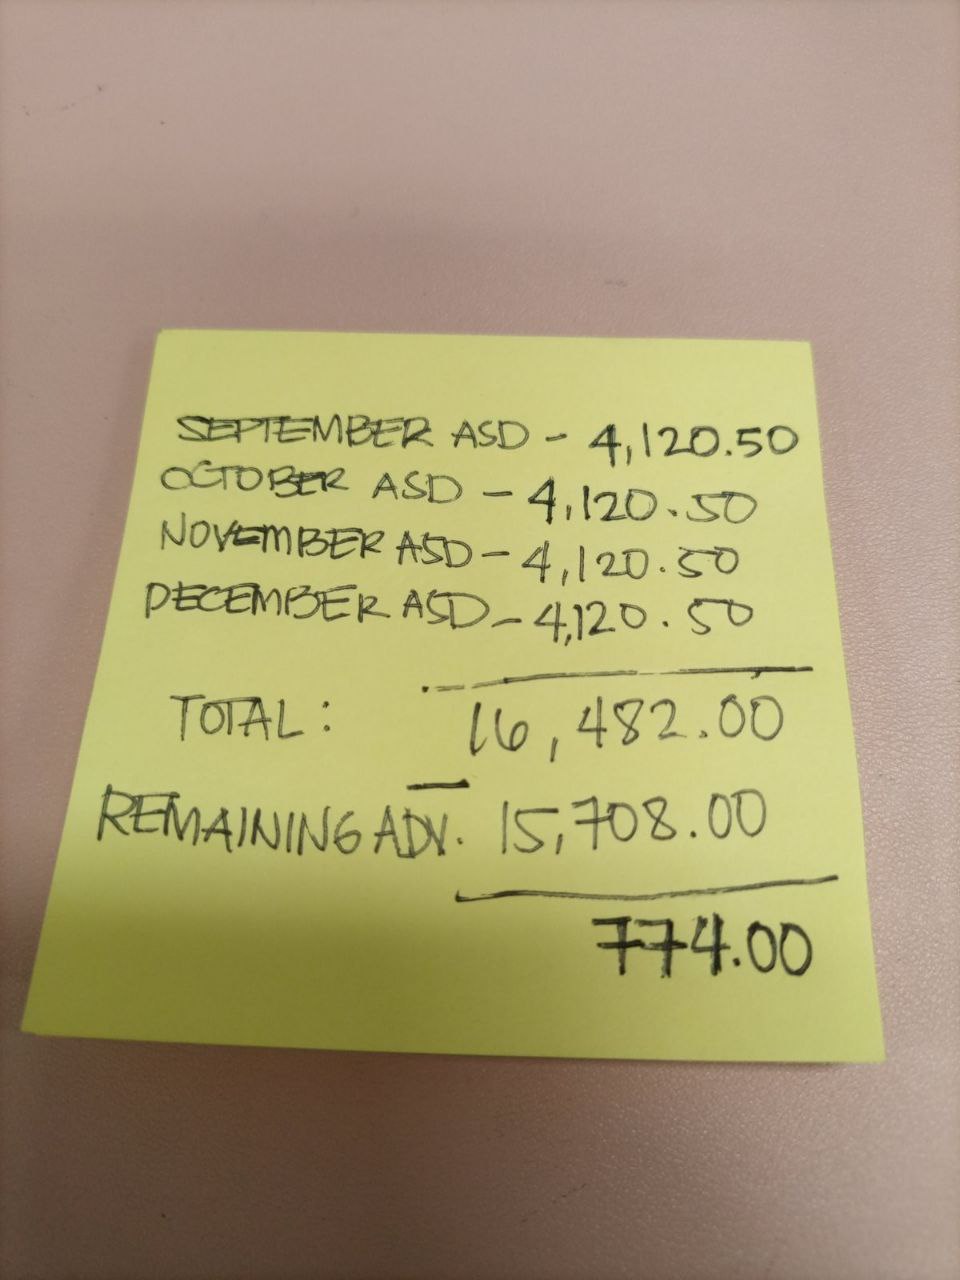 SEPTEMBER ASD - 4,120.50
OCTOBER ASD - 4,120.50
NOVEMBER ASD - 4,120.50
DECEMBER ASD - 4,120.50
TOTAL: 16,482.00
REMAINING ADV. - 15,708.00
774.00